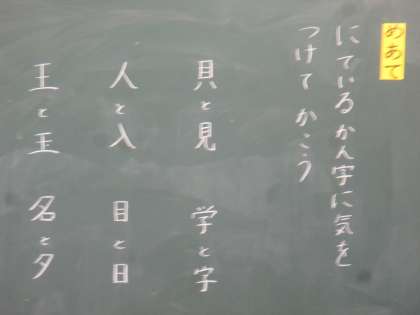 めあて
にているかん字に気を
つけて かこう
貝と見 学と字
人と入 目と日
王と玉 名と夕